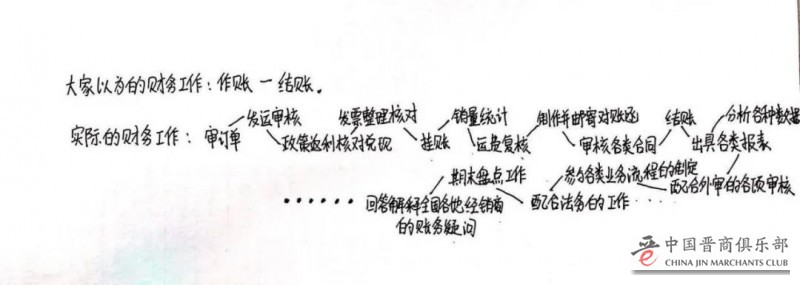 大家以为的财务工作：作账－结账。
发运审核 发票整理核对 销量统计 制作并邮寄对账函 结账 分析各种数据
实际的财务工作：审订单 政策返利核对兑现 挂账 运费复核 审核各类合同 出具各类报表
期末盘点工作 参与各类业务流程的制定 配合外审的各项审核
······ 回答解释全国各地经销商的账务疑问 配合法务的工作···
中国晋商俱乐部
CHINA JIN MARCHANTS CLUB